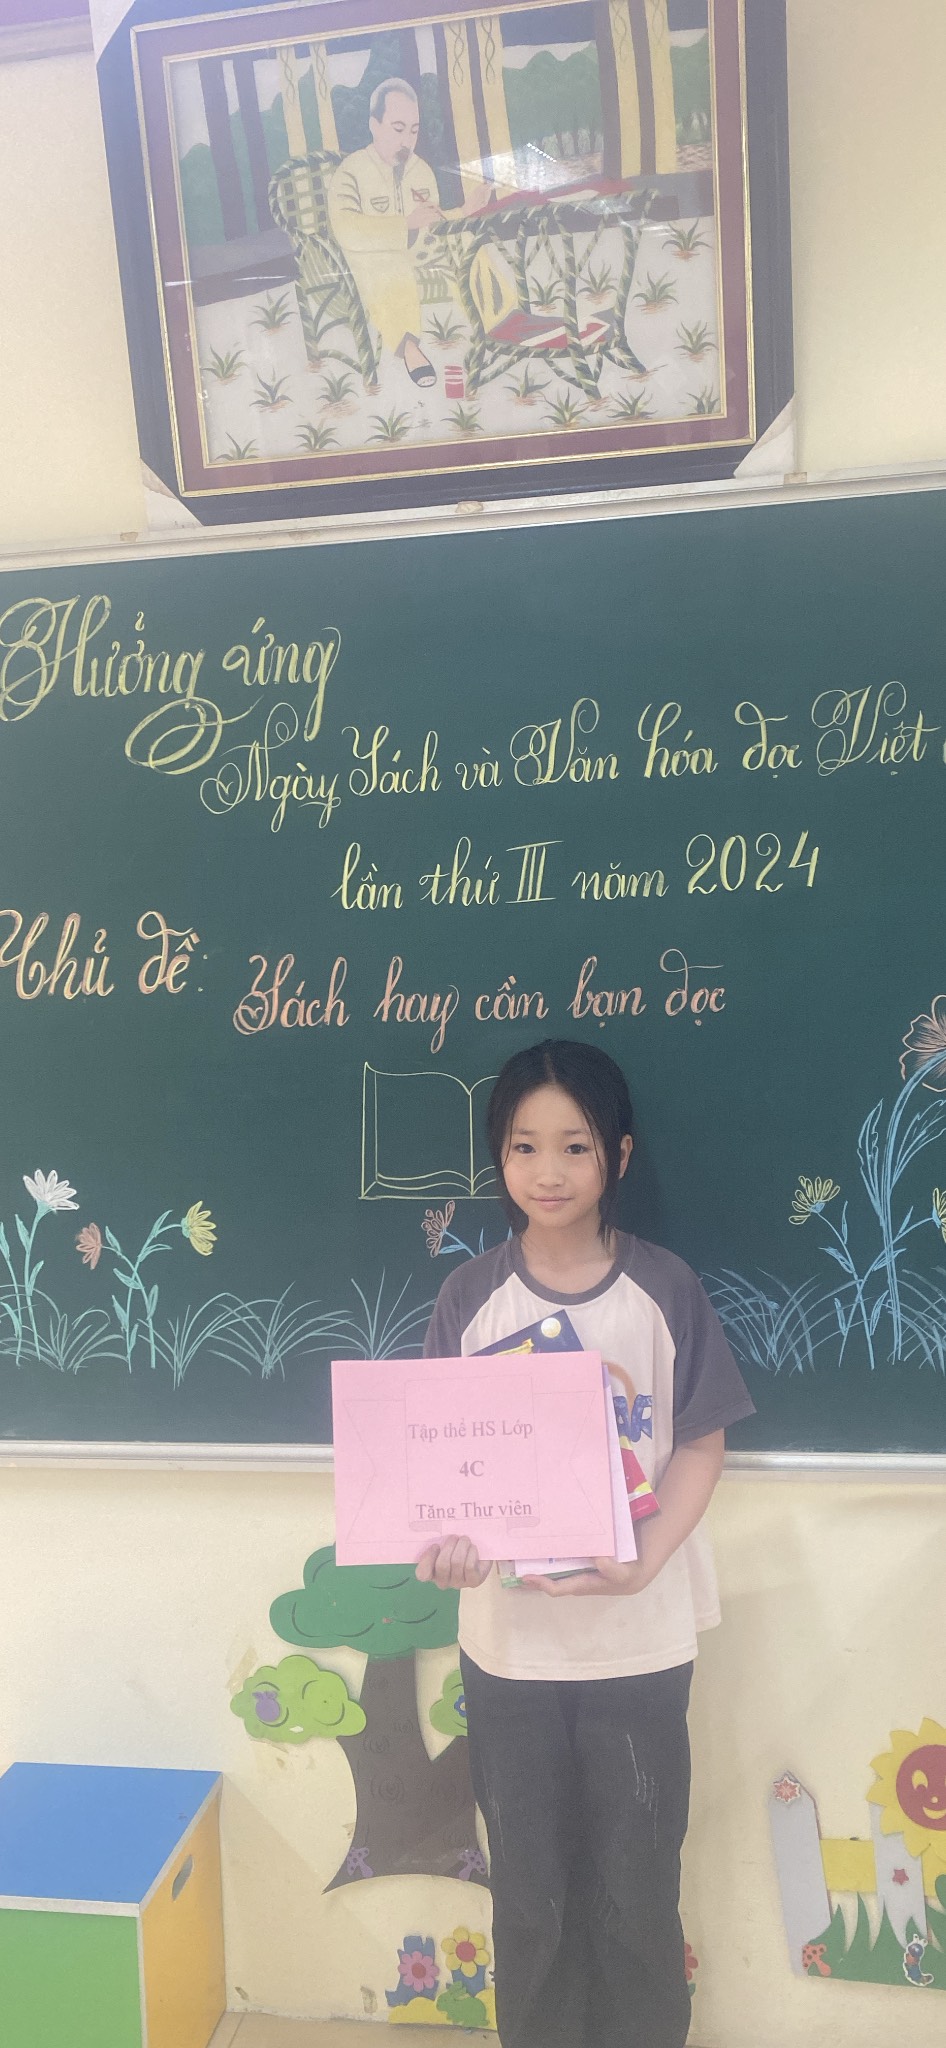 Hưởng ứng
Ngày Sách và Văn hóa đọc Việt
lần thứ III năm 2024
Chủ đề: Sách hay cần bạn đọc
Tập thể HS Lớp
4C
Tặng Thư viện